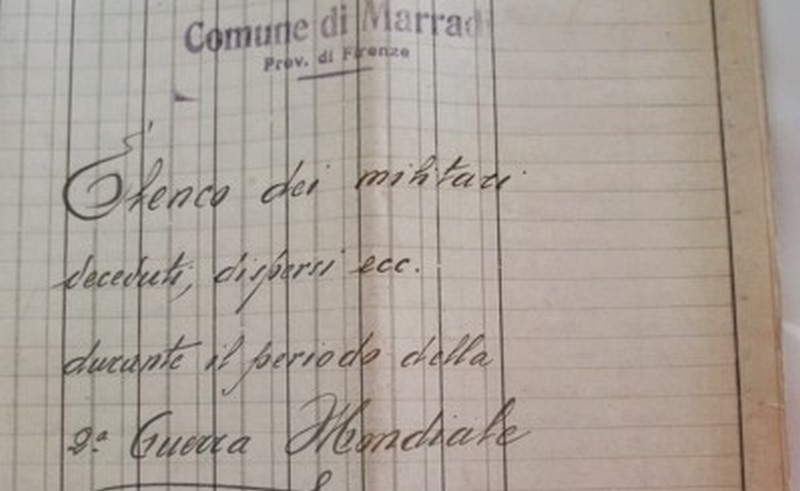 Comune di Marradi
Prov. di Firenze
Elenco dei militari
deceduti, dispersi ecc.
durante il periodo della
2ª Guerra Mondiale